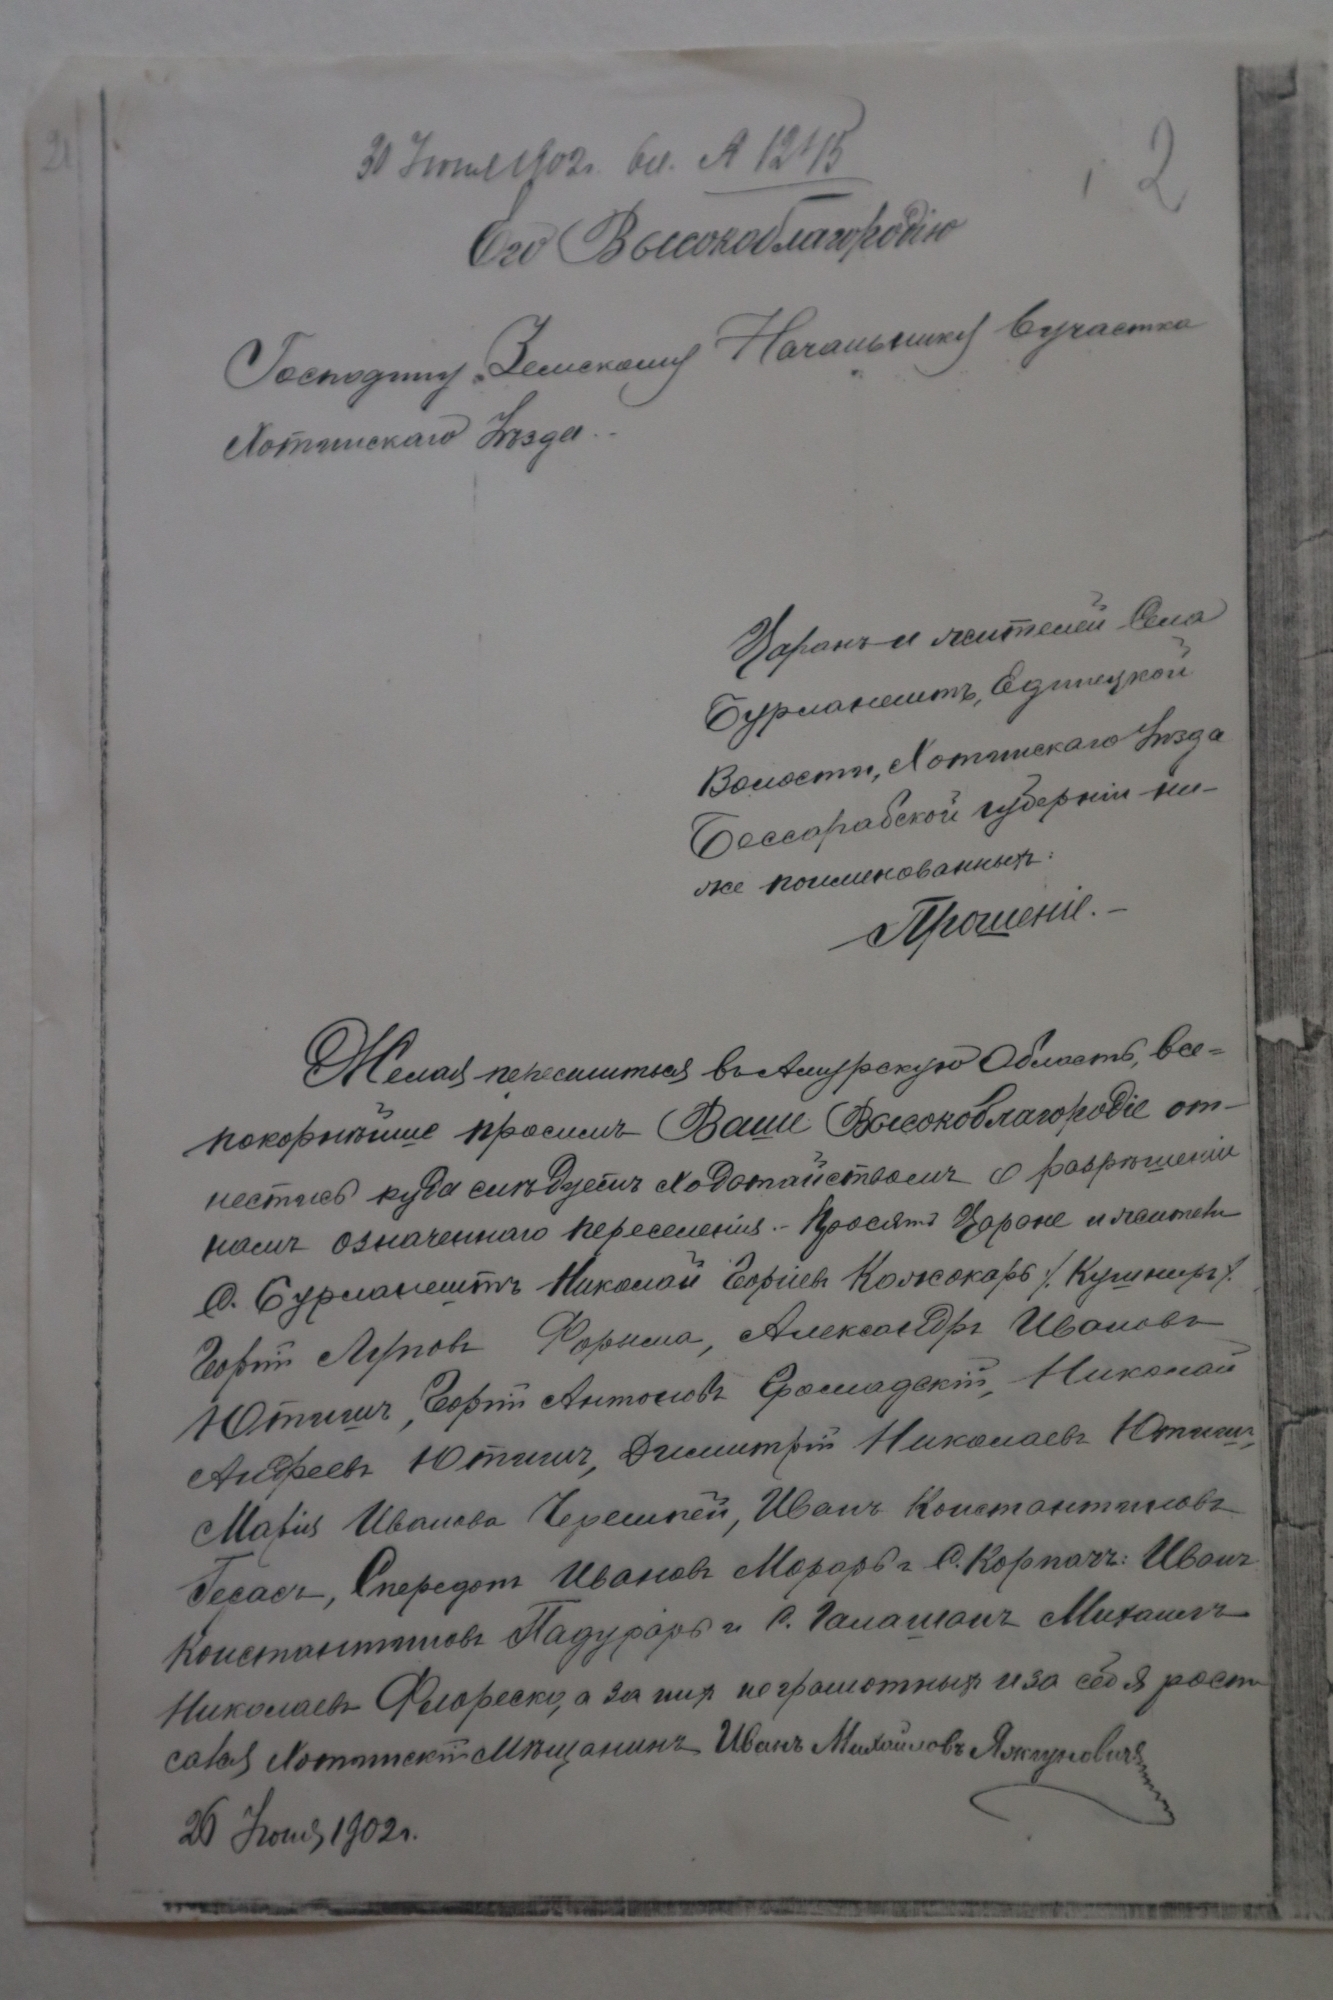 21
30 Июня 1902 г. вх. № 1215
2
Его Высокоблагородію
Господину Земскому Начальнику 6 участка
Хотинскаго Уѣзда.
Царанъ и жителей Села
Бурланештъ, Единецкой
Волости, Хотинскаго Уѣзда
Бессарабской губерніи ни-
же поименованныхъ:
Прошеніе.-
Желая переселиться въ Амурскую Область, все=
покорнѣйше просимъ Ваше Высокоблагородіе от-
нестись куда слѣдуетъ ходотайствомъ о разрѣшеніи
намъ означеннаго переселенія.- Просятъ Царане и жители
С. Бурланештъ Николай Георгіевъ Кожокарь /. Кушниръ /.
Георгій Луповъ Форыма, Александръ Ивановъ
Ютишъ, Георгій Антоновъ Громадскій, Николай
Андреевъ Ютишъ, Димитрій Николаевъ Ютишъ,
Марія Иванова Черешней, Иванъ Константиновъ
Гесасъ, Спередонъ Ивановъ Морарь и С. Корпачъ: Иванъ
Константиновъ Падурарь и С. Галашанъ Михаилъ
Николаевъ Флореско, а за них неграмотных и за себя роспи
салъ Хотинскій Мѣщанинъ Иванъ Михайловъ
26 Іюня 1902 г.